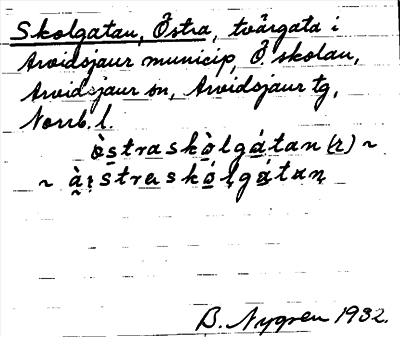 Skolgatan, Östra, tvärgata i
Arvidsjaur municip, Ö skolan,
Arvidsjaur sn, Arvidsjaur tg,
Norrb. l.
òstraskòlgátan (r) ~
~ ài̯straskólgátan
B. Nygren 1932.